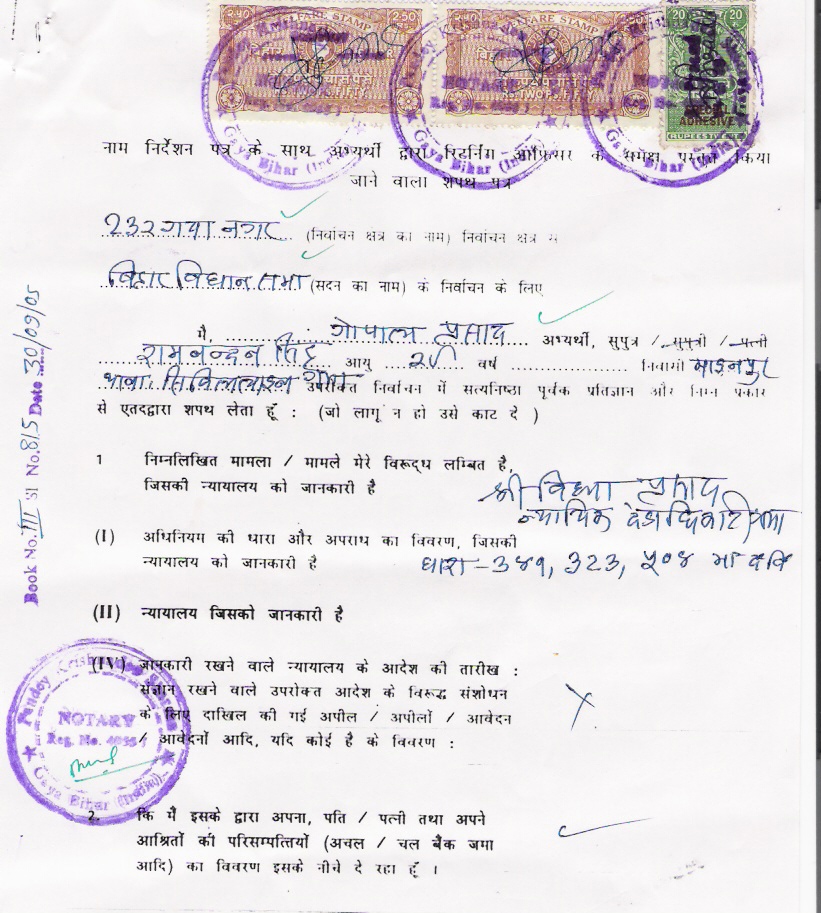 २.५० WELFARE STAMP २.५०
Rs. TWO FIFTY
२.५० WELFARE STAMP २.५०
Rs. TWO FIFTY
20 20
ADHESIVE
NOTARY
Gaya Bihar (India)
नाम निर्देशन पत्र के साथ अभ्यर्थी द्वारा रिटर्निंग ऑफिसर के समक्ष प्रस्तुत किया
जाने वाला शपथ पत्र
232 गया नगर (निर्वाचन क्षेत्र का नाम) निर्वाचन क्षेत्र से
बिहार विधान सभा (सदन का नाम) के निर्वाचन के लिए
मै, गोपाल प्रसाद अभ्यर्थी, सुपुत्र / सुपुत्री / पत्नी
रामनन्दन सिंह आयु वर्ष निवासी
थाना सिविल लाइन गया उपरोक्त निर्वाचन में सत्यनिष्ठा पूर्वक प्रतिज्ञान और निम्न प्रकार
से एतदद्वारा शपथ लेता हूँ : (जो लागू न हो उसे काट दे )
1 निम्नलिखित मामला / मामले मेरे विरूद्ध लम्बित है,
जिसकी न्यायालय को जानकारी है
श्री विद्या प्रसाद
न्यायिक दंडाधिकारी गया
(I) अधिनियम की धारा और अपराध का विवरण, जिसकी
न्यायालय को जानकारी है धारा - ३४१, 323, ५०४ भा द वि
(II) न्यायालय जिसको जानकारी है
(IV) जानकारी रखने वाले न्यायालय के आदेश की तारीख :
संज्ञान रखने वाले उपरोक्त आदेश के विरूद्ध संशोधन
के लिए दाखिल की गई अपील / अपीलों / आवेदन
/ आवेदनों आदि, यदि कोई है के विवरण :
2. कि मैं इसके द्वारा अपना, पति / पत्नी तथा अपने
आश्रितों की परिसम्पत्तियों (अचल / चल बैंक जमा
आदि) का विवरण इसके नीचे दे रहा हूँ ।
Book No. III Sl No. 815 Date 30/09/05
NOTARY
Reg. No.
Gaya Bihar (India)